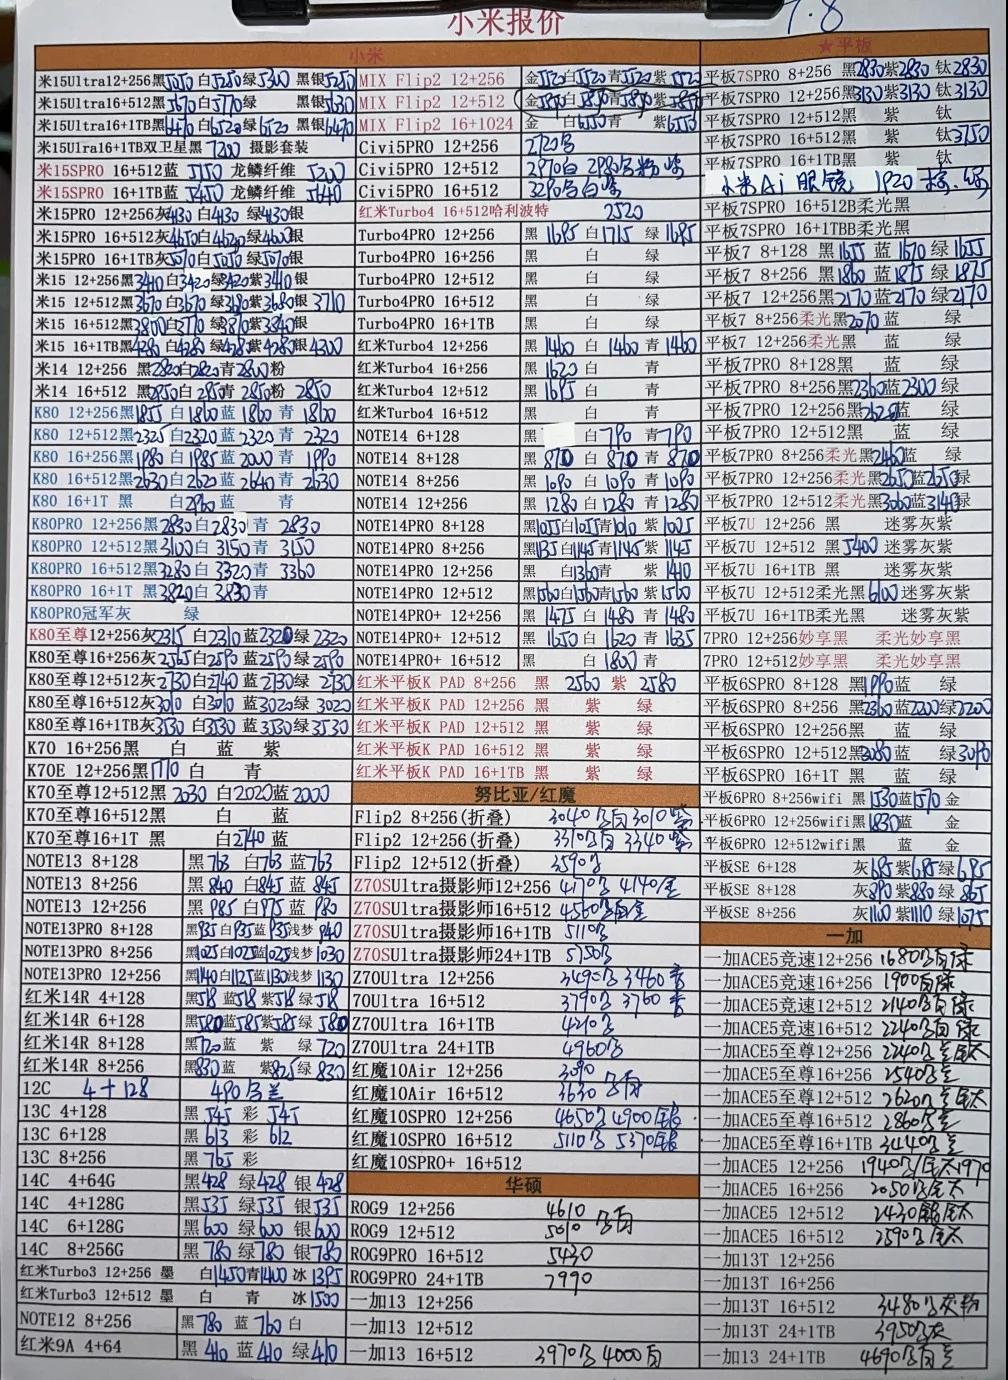 小米报价
7.8
小米
米15Ultra12+256黑5050 白5250绿5300 黑银5250
米15Ultra16+512黑5670白5770绿 黑银5630
米15Ultra16+1TB黑6470 白6520绿6520 黑银6470
米15Ulra16+1TB双卫星黑 7200 摄影套装
米15SPRO 16+512蓝 5150 龙鳞纤维 5200
米15SPRO 16+1TB蓝 5450 龙鳞纤维 5640
米15PRO 12+256灰4130 白4130 绿4130银
米15PRO 16+512灰4650白4620绿4600银
米15PRO 16+1TB灰5070白5050绿5070银
米15 12+256黑3410白3420绿3420紫3410银
米15 12+512黑3670白3670绿3680紫3680银 3710
米15 16+512黑3800白3770绿3870紫3840银
米15 16+1TB黑4280 白4280 绿4285紫4280银4300
米14 12+256 黑2820白2820青2800粉
米14 16+512 黑2850白2850青2850粉 2850
K80 12+256黑1855 白1860蓝 1860 青 1860
K80 12+512黑2325白2320蓝 2320 青 2320
K80 16+256黑1980 白1985蓝 2000 青 1990
K80 16+512黑2630白2620 蓝 2640 青 2630
K80 16+1T 黑 白2960 蓝 青
K80PRO 12+256黑2830白2830青 2830
K80PRO 12+512黑3100白 3150青 3150
K80PRO 16+512黑3280白 3320青 3360
K80PRO 16+1T 黑3820白 3830青
K80PRO冠军灰 绿
K80至尊12+256灰2315 白2310蓝2320绿 2320
K80至尊16+256灰2565白2590 蓝2590绿 2590
K80至尊12+512灰2730白2740 蓝2730绿 2730
K80至尊16+512灰3010 白3010 蓝3020绿 3020
K80至尊16+1TB灰3530 白3530 蓝3530绿3530
K70 16+256黑 白 蓝 紫
K70E 12+256黑1770 白 青
K70至尊12+512黑 2030 白2020蓝2000
K70至尊16+512黑 白 蓝
K70至尊16+1T 黑 白2740 蓝
NOTE13 8+128 黑763 白763 蓝763
NOTE13 8+256 黑 840 白845 蓝 845
NOTE13 12+256 黑985 白975 蓝 980
NOTE13PRO 8+128 黑935白935蓝935浅梦 940
NOTE13PRO 8+256 黑1025白1025蓝1025浅梦 1030
NOTE13PRO 12+256 黑1140白1125蓝1130浅梦 1130
红米14R 4+128 黑518 蓝518 紫518 绿518
红米14R 6+128 黑580蓝585紫585绿 580
红米14R 8+128 黑720蓝 紫 绿 720
红米14R 8+256 黑830蓝 紫825绿 830
12C 4+128 490乌兰
13C 4+128 黑 545 彩 545
13C 6+128 黑 613 彩 612
13C 8+256 黑 765 彩
14C 4+64G 黑428 绿428 银 428
14C 4+128G 黑535 绿535 银535
14C 6+128G 黑600 绿600 银600
14C 8+256G 黑780 绿780 银780
红米Turbo3 12+256 墨 白1450青1400 冰1395
红米Turbo3 12+512 墨 白 青 冰1500
NOTE12 8+256 黑780 蓝760白
红米9A 4+64 黑 410 蓝410 绿410
MIX Flip2 12+256 金5520白5520青5520紫 5520
MIX Flip2 12+512 金5870白5870青5870紫5870
MIX Flip2 16+1024 金 白6550 紫6550
Civi5PRO 12+256 2720乌
Civi5PRO 12+512 2970白 2980乌粉 紫
Civi5PRO 16+512 3290乌白紫
红米Turbo4 16+512哈利波特 2520
Turbo4PRO 12+256 黑 1695 白1715 绿 1695
Turbo4PRO 16+256 黑 白 绿
Turbo4PRO 12+512 黑 白 绿
Turbo4PRO 16+512 黑 白 绿
Turbo4PRO 16+1TB 黑 白 绿
红米Turbo4 12+256 黑 1460 白 1460 青 1460
红米Turbo4 16+256 黑 1620 白 青
红米Turbo4 12+512 黑 1695 白 青
红米Turbo4 16+512 黑 白 青
NOTE14 6+128 黑 白790 青790
NOTE14 8+128 黑 870 白 870 青 870
NOTE14 8+256 黑 1090 白 1090 青 1090
NOTE14 12+256 黑 1280 白 1280 青 1280
NOTE14PRO 8+128 黑1055白1055青1010 紫 1025
NOTE14PRO 8+256 黑1135白1145青1145紫 1145
NOTE14PRO 12+256 黑 白1360青 紫 1410
NOTE14PRO 12+512 黑1560白1560青1560紫 1560
NOTE14PRO+ 12+256 黑 1475 白 1480 青 1480
NOTE14PRO+ 12+512 黑 1650 白 1620 青 1635
NOTE14PRO+ 16+512 黑 白 1800 青
红米平板K PAD 8+256 黑 2560 紫 2580
红米平板K PAD 12+256 黑 紫 绿
红米平板K PAD 12+512 黑 紫 绿
红米平板K PAD 16+512 黑 紫 绿
红米平板K PAD 16+1TB 黑 紫 绿
努比亚/红魔
Flip2 8+256(折叠) 3040乌白 3010紫
Flip2 12+256(折叠) 3310乌白 3340紫
Flip2 12+512(折叠) 3590乌
Z70SUltra摄影师12+256 4170乌 4140金
Z70SUltra摄影师16+512 4560乌白金
Z70SUltra摄影师16+1TB 5110乌
Z70SUltra摄影师24+1TB 5750乌
Z70Ultra 12+256 3490乌 3460青
70Ultra 16+512 3790乌 3760 青
Z70Ultra 16+1TB 4210乌
Z70Ultra 24+1TB 4960乌
红魔10Air 12+256 3090
红魔10Air 16+512 3630乌白
红魔10SPRO 12+256 4650乌4900白银
红魔10SPRO 16+512 5110乌 5370白银
红魔10SPRO+ 16+512
华硕
ROG9 12+256 4610
ROG9 12+512 5010 乌白
ROG9PRO 16+512 5430
ROG9PRO 24+1TB 7990
一加13 12+256
一加13 12+512
一加13 16+512 3970乌 4000白
★平板
平板7SPRO 8+256 黑2830紫2830 钛2830
平板7SPRO 12+256黑3130紫3130 钛3130
平板7SPRO 12+512黑 紫 钛
平板7SPRO 16+512黑 紫 钛3750
平板7SPRO 16+1TB黑 紫 钛
小米Ai眼镜 1920
平板7SPRO 16+512B柔光黑
平板7SPRO 16+1TBB柔光黑
平板7 8+128 黑1655 蓝1670 绿1655
平板7 8+256 黑1860 蓝1875 绿1875
平板7 12+256黑2170蓝2170 绿2170
平板7 8+256柔光黑2070 蓝 绿
平板7 12+256柔光黑 蓝 绿
平板7PRO 8+128黑 蓝 绿
平板7PRO 8+256黑2360蓝2300 绿
平板7PRO 12+256黑2620蓝 绿
平板7PRO 12+512黑 蓝 绿
平板7PRO 8+256柔光黑2460蓝 绿
平板7PRO 12+256柔光黑2650蓝2650绿
平板7PRO 12+512柔光黑3060蓝3140绿
平板7U 12+256 黑 迷雾灰紫
平板7U 12+512 黑5400 迷雾灰紫
平板7U 16+1TB 黑 迷雾灰紫
平板7U 12+512柔光黑6100 迷雾灰紫
平板7U 16+1TB柔光黑 迷雾灰紫
7PRO 12+256妙享黑 柔光妙享黑
7PRO 12+512妙享黑 柔光妙享黑
平板6SPRO 8+128 黑1990蓝 绿
平板6SPRO 8+256 黑2360蓝2200绿2200
平板6SPRO 12+256黑 蓝 绿
平板6SPRO 12+512黑3080蓝 绿3090
平板6SPRO 16+1T 黑 蓝 绿
平板6PRO 8+256wifi 黑1530蓝1570 金
平板6PRO 12+256wifi黑1830蓝 金
平板6PRO 12+512wifi黑 蓝 金
平板SE 6+128 灰685 紫685绿 685
平板SE 8+128 灰890 紫880 绿865
平板SE 8+256 灰1100 紫1110 绿1075
一加
一加ACE5竞速12+256 1680乌白绿
一加ACE5竞速16+256 1900白绿
一加ACE5竞速12+512 2140乌白绿
一加ACE5竞速16+512 2240乌白 绿
一加ACE5至尊12+256 2240乌兰白钛
一加ACE5至尊16+256 2540乌兰
一加ACE5至尊12+512 2620乌兰钛
一加ACE5至尊16+512 2860乌兰
一加ACE5至尊16+1TB 3440乌兰
一加ACE5 12+256 1940乌/白太1970
一加ACE5 16+256 2050乌白太
一加ACE5 12+512 2430乌白太
一加ACE5 16+512 2590乌白太
一加13T 12+256
一加13T 16+256
一加13T 16+512 3480乌灰粉
一加13T 24+1TB 3950乌灰
一加13 24+1TB 4690乌白兰